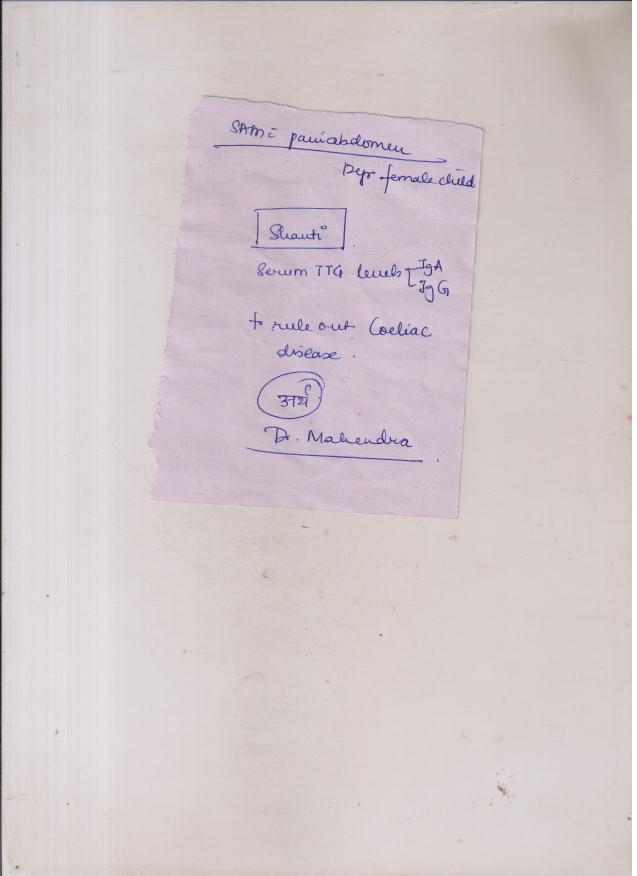 SAM c̄ pain abdomen
female child
Shanti
Serum TTG levels IgA
IgG
to rule out Coeliac
disease.
अर्थ
Dr. Mahendra